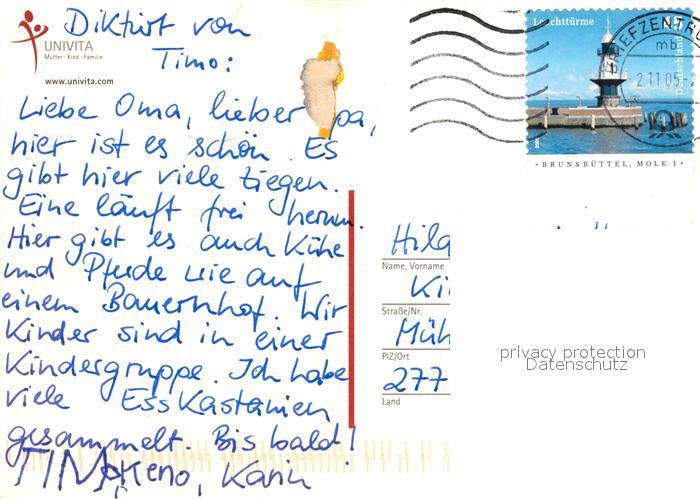 Diktiert von
Timo:
UNIVITA
Mutter · Kind · Familie
www.univita.com
Liebe Oma, lieber pa,
hier ist es schön. Es
gibt hier viele Ziegen.
Eine läuft frei herum.
Hier gibt es auch Kühe
und Pferde wie auf
einem Bauernhof. Wir
Kinder sind in einer
Kindergruppe. Ich habe
viele Esskastanien
gesammelt. Bis bald!
TIMO, Keno, Karin
Leuchttürme
Deutschland
BRIEFZENTRUM
mb
2.11.05
BRUNSBÜTTEL, MOLE 1
Hild
Name, Vorname
Ki
Straße/Nr.
Müh
PLZ/Ort
277
Land
privacy protection
Datenschutz